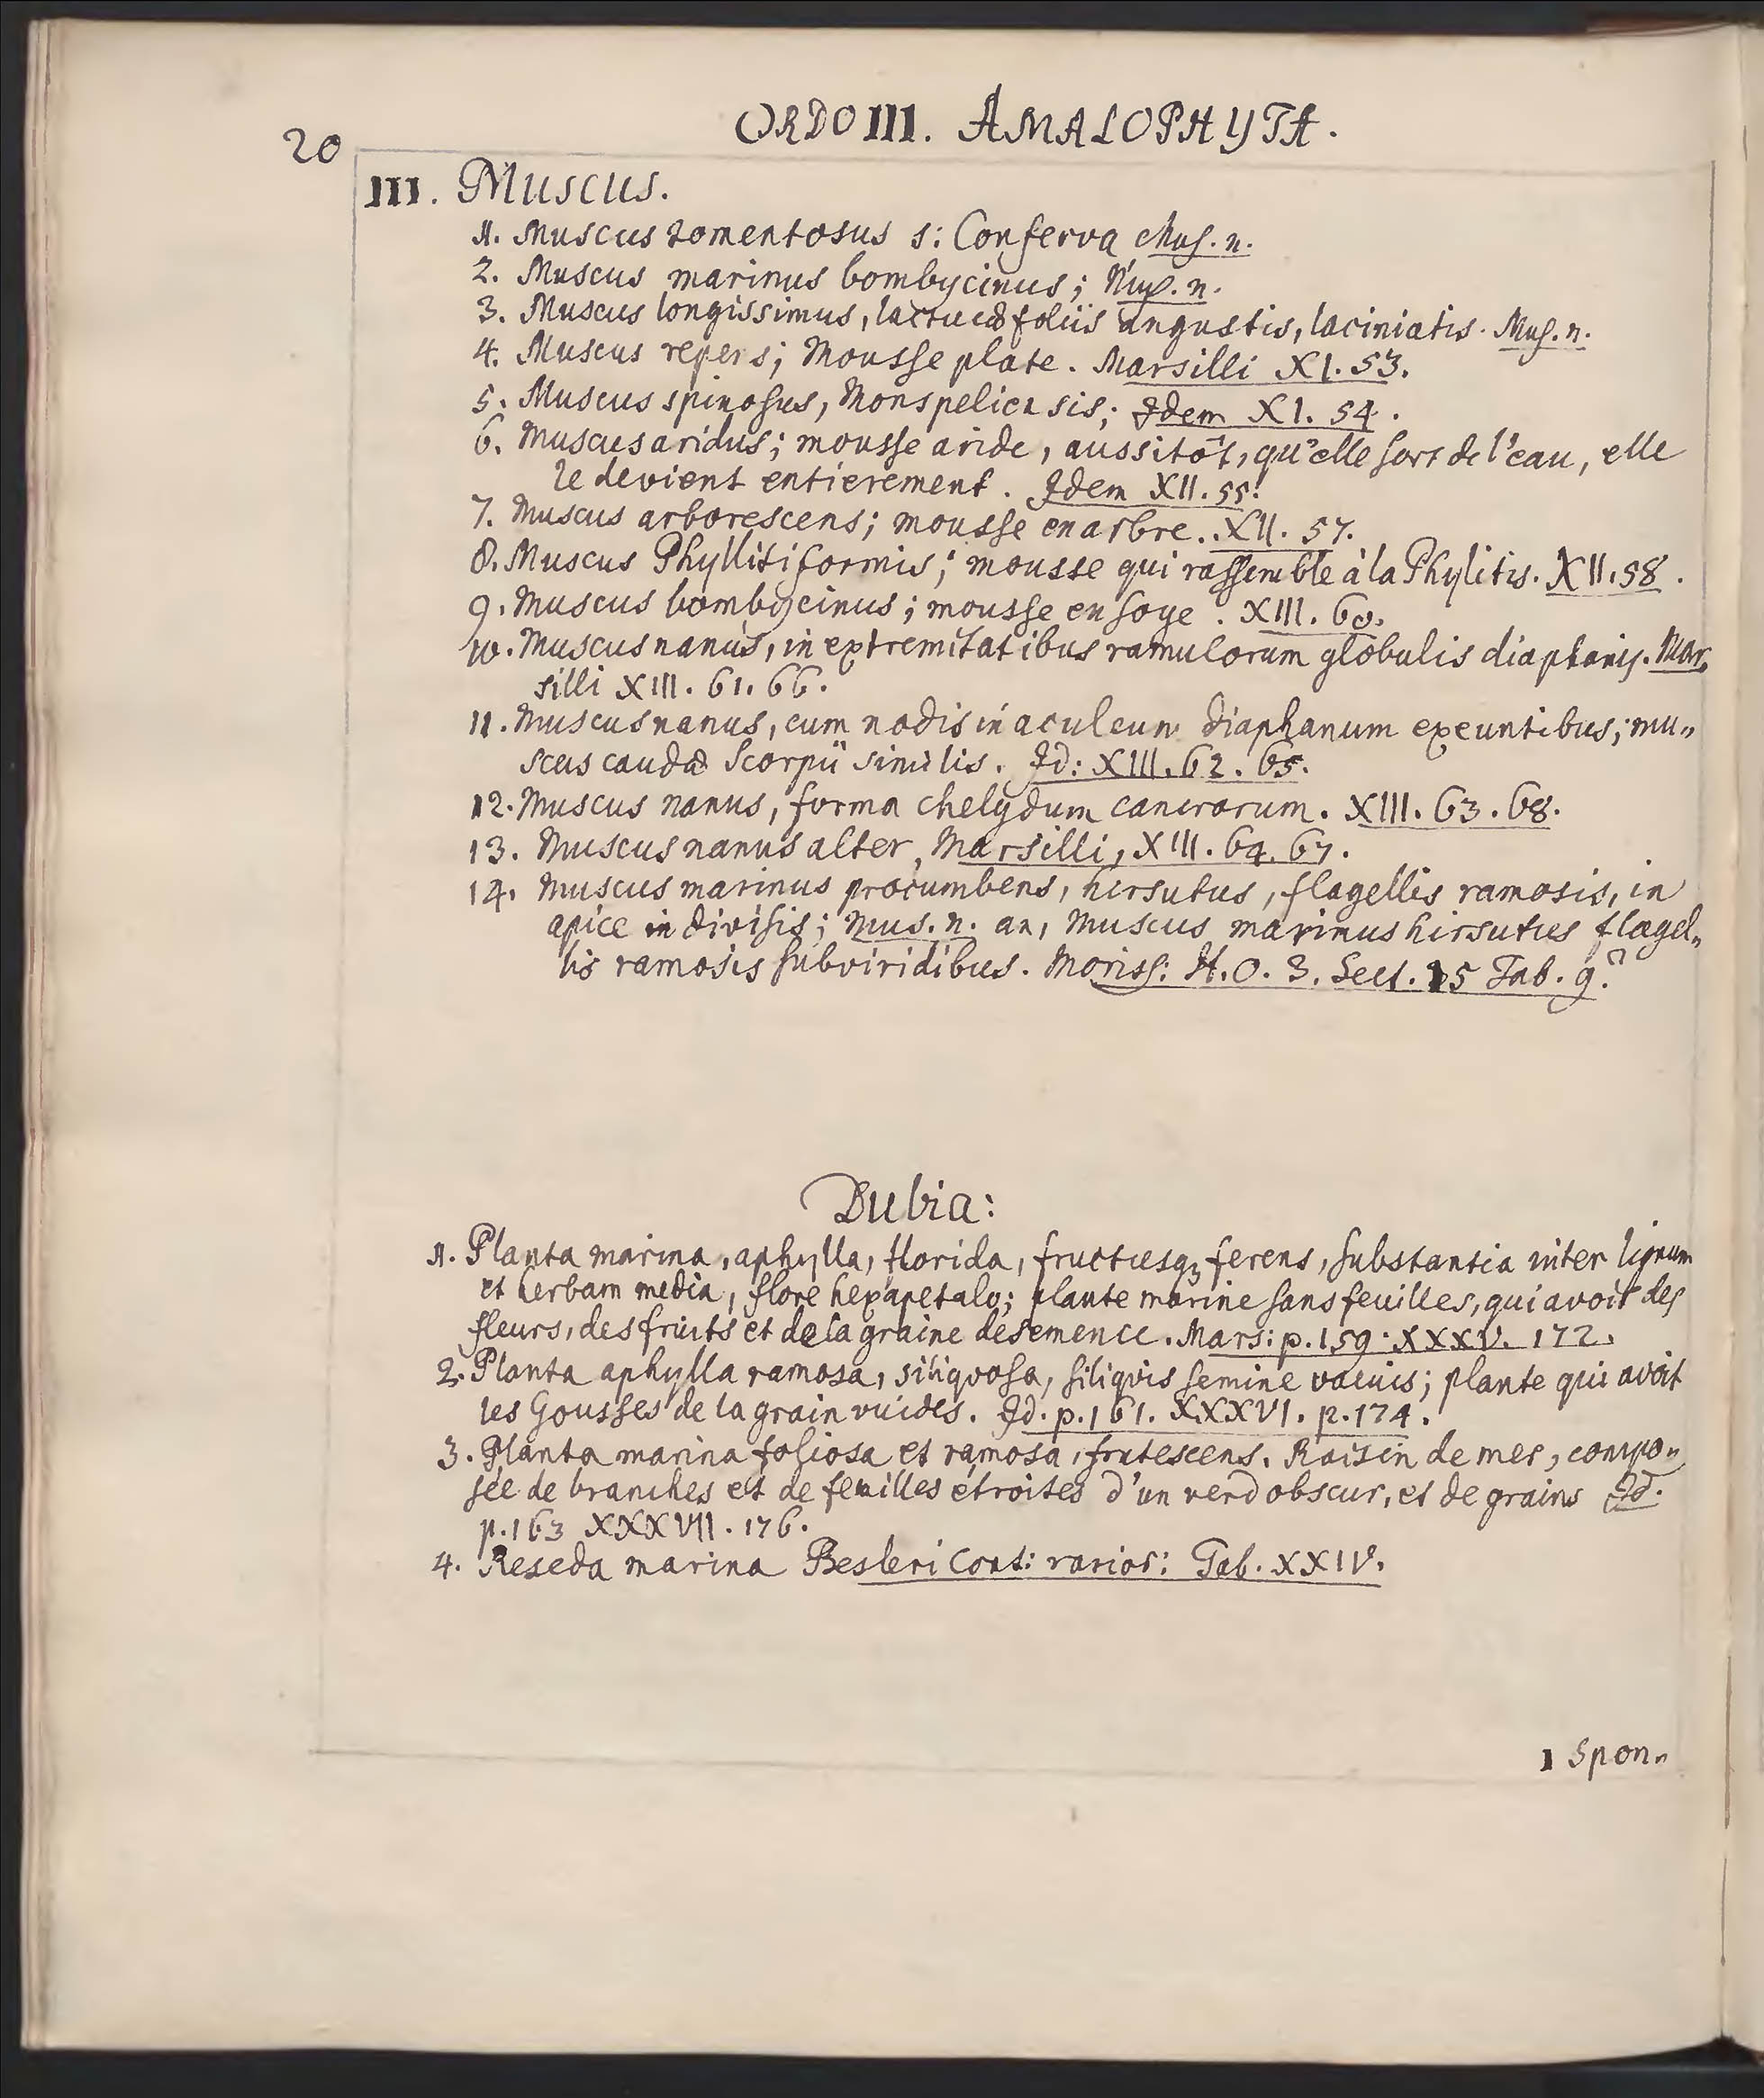 20
ORDO III. AMALOPHYTA.
III. Muscus.
1. Muscus tomentosus s: Conferva Mus. n.
2. Muscus marinus bombycinus; Mus. n.
3. Muscus longissimus, lactucæ foliis angustis, laciniatis. Mus. n.
4. Muscus repens; Mousse plate. Marsilli XI. 53.
5. Muscus spinosus, Monspeliensis; Idem XI. 54.
6. Muscus aridus; mousse aride, aussitôt, qu'elle sort de l'eau, elle
le devient entierement. Idem XII. 55.
7. Muscus arborescens; mousse en arbre. XII. 57.
8. Muscus Phyllitiformis; mousse qui rassemble à la Phylitis. XII. 58.
9. Muscus bombycinus; mousse en soye. XIII. 60.
10. Muscus nanus, in extremitatibus ramulorum globulis diaphanis. Mar„
silli XIII. 61. 66.
11. Muscus nanus, cum nodis in aculeum diaphanum exeuntibus; mu„
scus caudæ Scorpii similis. Id: XIII. 62. 65.
12. Muscus nanus, forma chelydum cancrorum. XIII. 63. 68.
13. Muscus nanus alter, Marsilli, XIII. 64. 67.
14. Muscus marinus procumbens, hirsutus, flagellis ramosis, in
apice in divisis; Mus. n. an, Muscus marinus hirsutus flagel„
lis ramosis subviridibus. Moriss: H. O. 3. Sect. 15 Tab. 9.?
Dubia:
1. Planta marina, aphylla, florida, fructusqꝫ ferens, substantia inter lignum
et herbam media, flore hexapetalo; plante marine sans feuilles, qui avoit des
fleurs, des fruits et de la graine de semence. Mars: p. 159. XXXV. 172.
2. Planta aphylla ramosa, siliquosa, siliquis semine vacuis; plante qui avoit
les Gousses de la grain vuides. Id. p. 161. XXXVI. p. 174.
3. Planta marina foliosa et ramosa, frutescens. Raisin de mer, compo„
sée de branches et de feuilles étroites d'un verd obscur, et de grains Id.
p. 163 XXXVII. 176.
4. Reseda marina Besleri Cont: rarior: Tab. XXIV.
1 Spon„